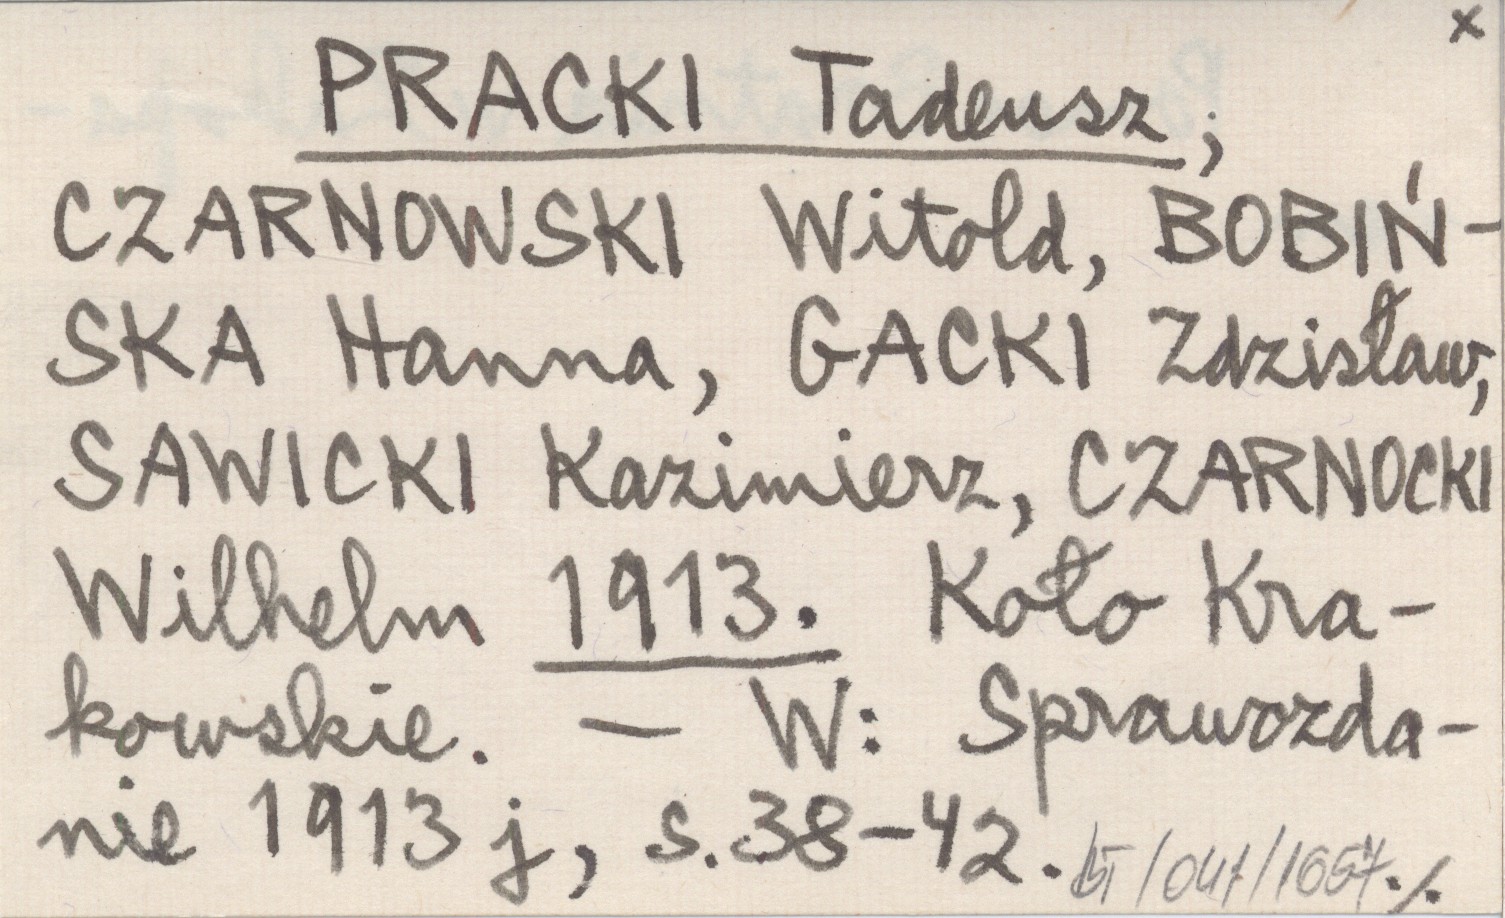 x
PRACKI Tadeusz;
CZARNOWSKI Witold, BOBIŃ-
SKA Hanna, GACKI Zdzisław,
SAWICKI Kazimierz, CZARNOCKI
Wilhelm 1913. Koło Kra-
kowskie. — W: Sprawozda-
nie 1913 j, s. 38-42.